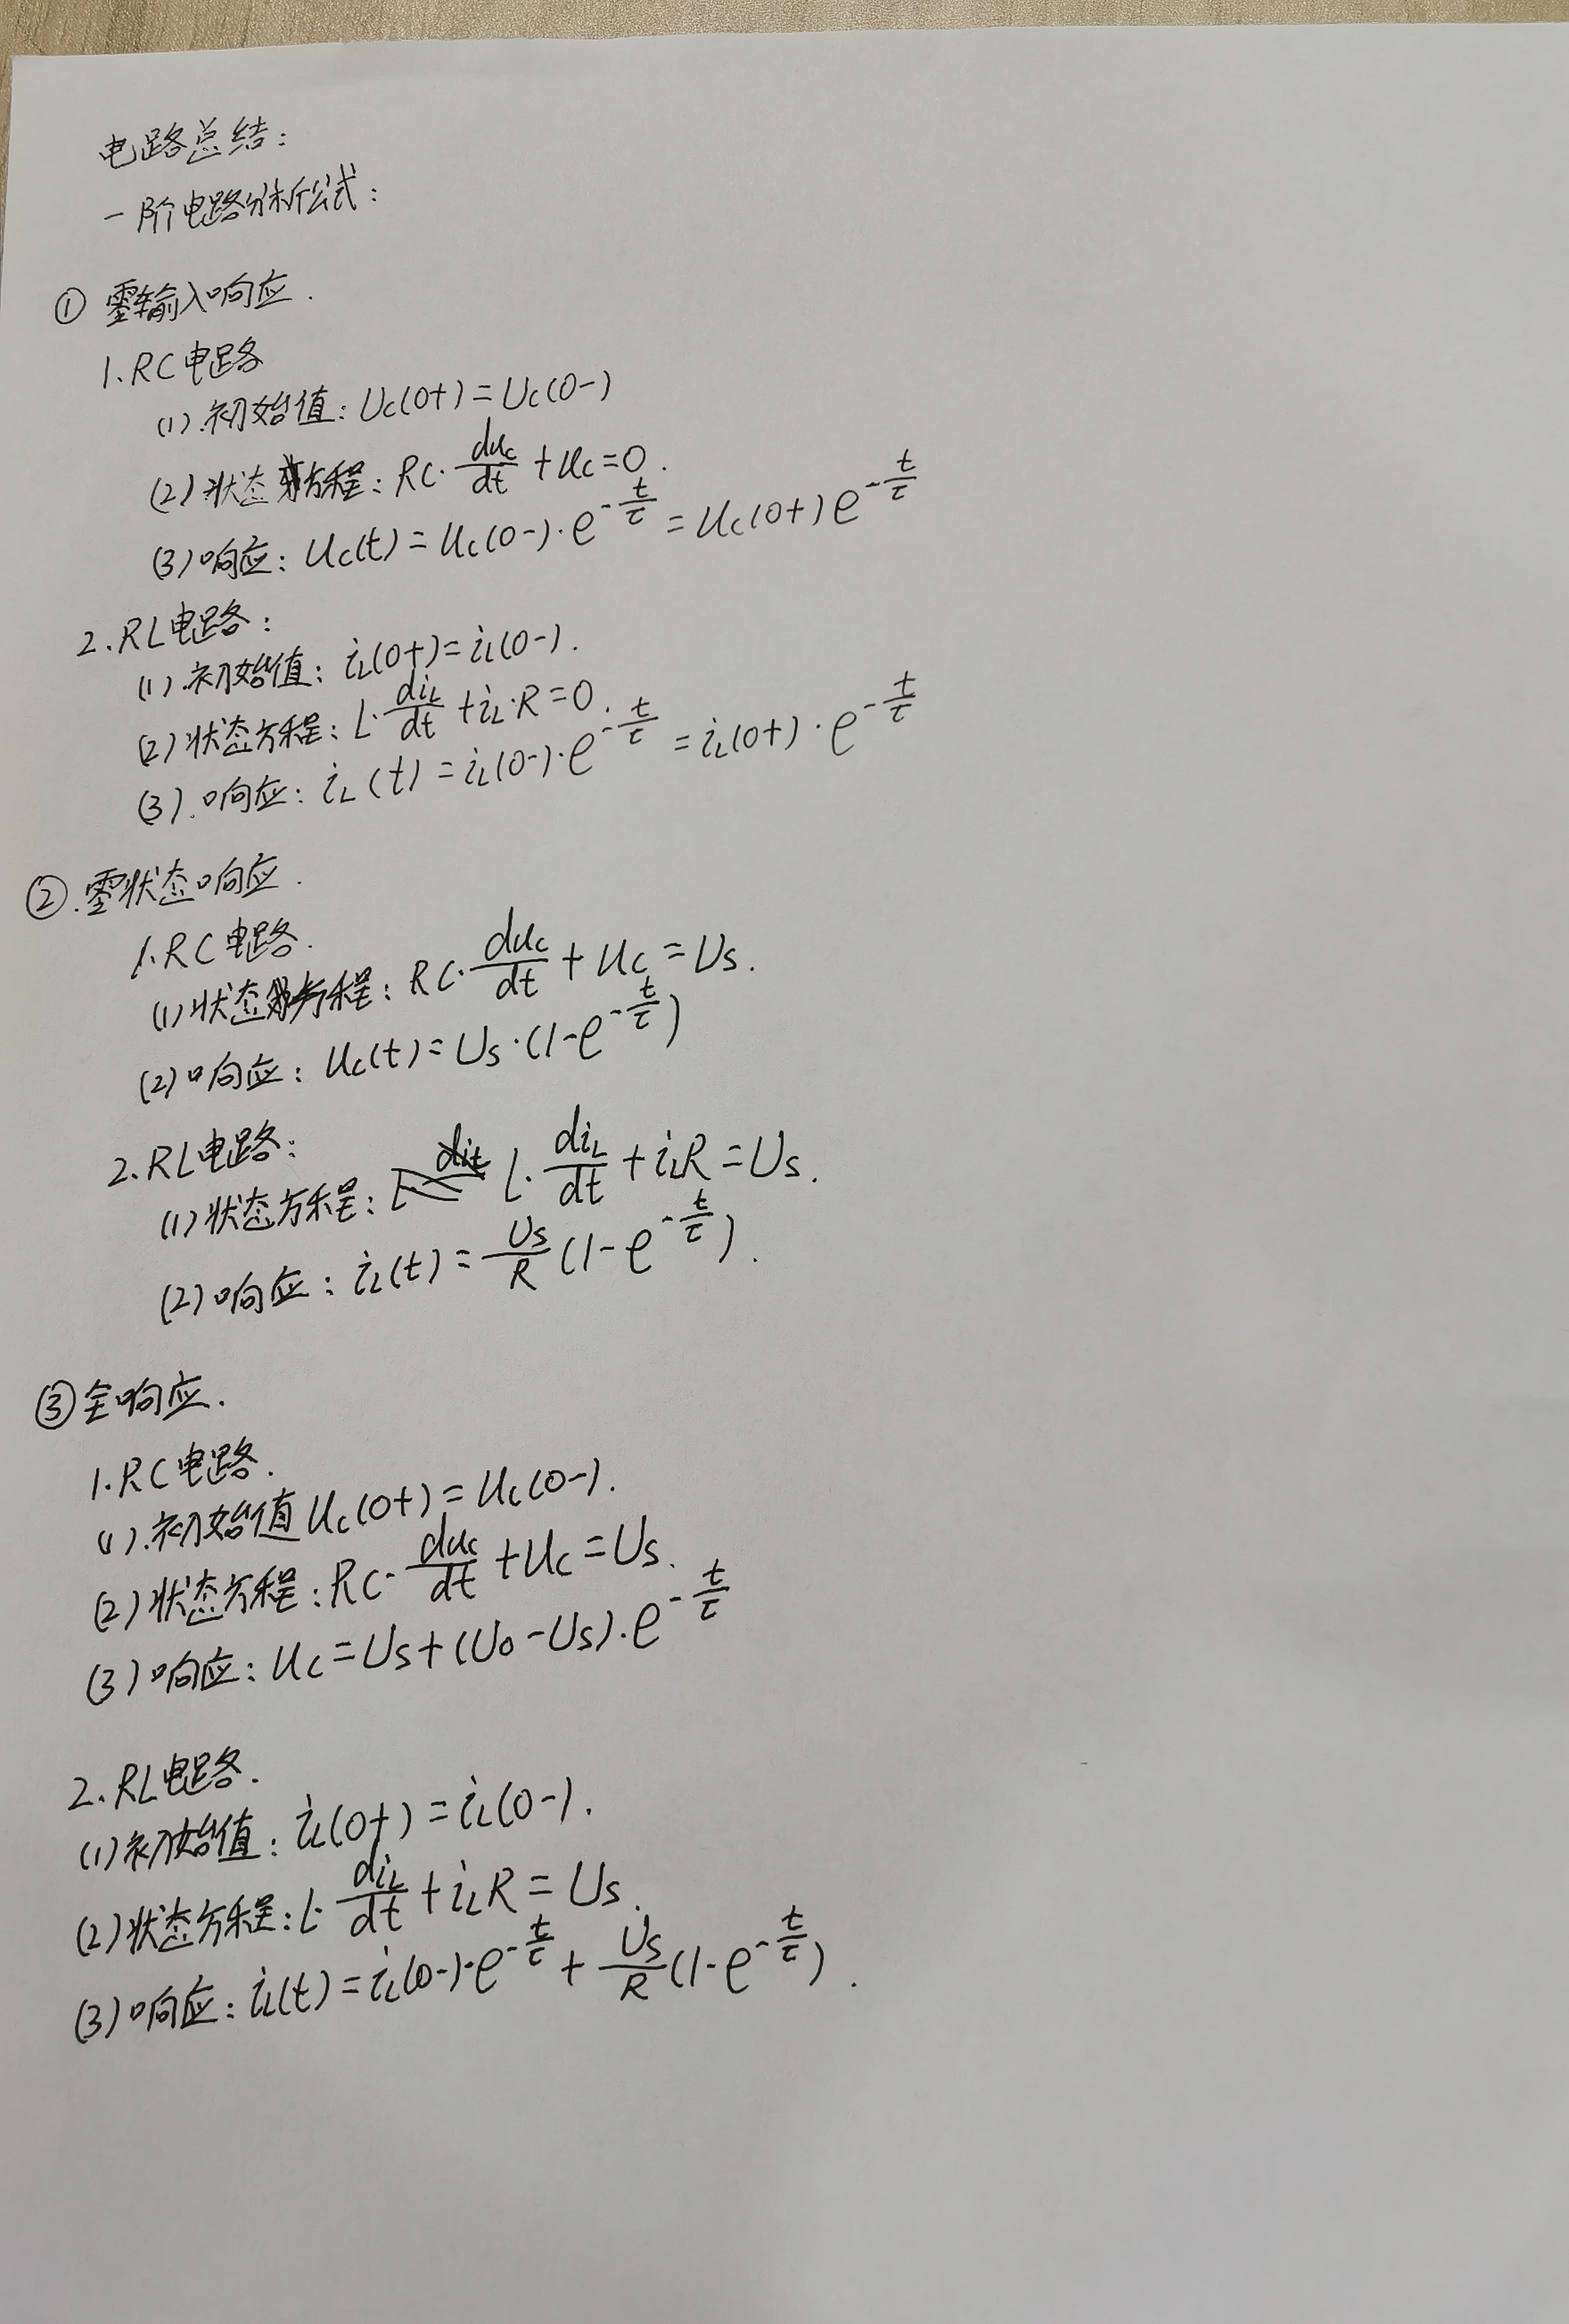 电路总结：
一阶电路分析公式：
① 零输入响应.
1. RC电路
(1).初始值：Uc(0+)=Uc(0-)
(2)状态方程：RC·duc/dt+uc=0.
(3)响应：uc(t)=uc(0-)·e^(-t/τ)=uc(0+)e^(-t/τ)
2. RL电路：
(1).初始值：iL(0+)=iL(0-).
(2)状态方程：L·diL/dt+iL·R=0.
(3).响应：iL(t)=iL(0-)·e^(-t/τ)=iL(0+)·e^(-t/τ)
②.零状态响应.
1. RC电路.
(1)状态方程：RC·duc/dt+uc=Us.
(2)响应：uc(t)=Us·(1-e^(-t/τ))
2. RL电路：
(1)状态方程：L·diL/dt+iLR=Us.
(2)响应：iL(t)=Us/R(1-e^(-t/τ)).
③全响应.
1. RC电路.
(1).初始值uc(0+)=uc(0-).
(2)状态方程：RC·duc/dt+uc=Us.
(3)响应：uc=Us+(U0-Us)·e^(-t/τ)
2. RL电路.
(1)初始值：iL(0+)=iL(0-).
(2)状态方程：L·diL/dt+iLR=Us.
(3)响应：iL(t)=iL(0-)·e^(-t/τ)+Us/R(1-e^(-t/τ)).